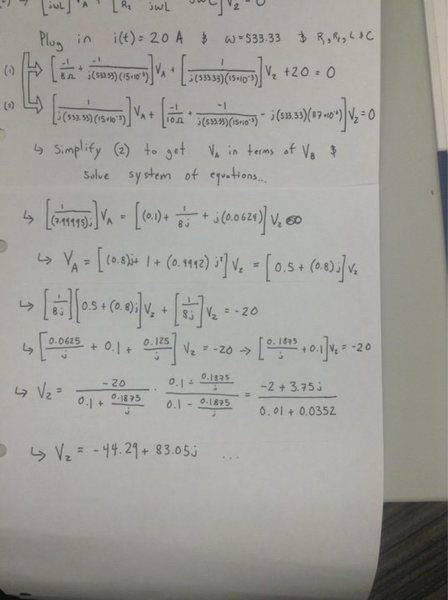 [jωL] V_A + [R_2 jωL jωC] V_2 = 0
Plug in i(t) = 20 A $ ω = 533.33 $ R_1, R_2, L $ C
(1) [-1/8Ω + -1/j(533.33)(15×10^-3)] V_A + [1/j(533.33)(15×10^-3)] V_2 + 20 = 0
(2) [1/j(533.33)(15×10^-3)] V_A + [-1/10Ω + -1/j(533.33)(15×10^-3) - j(533.33)(117×10^-6)] V_2 = 0
↳ Simplify (2) to get V_A in terms of V_B $
Solve system of equations...
↳ [1/(7.99995)j] V_A = [(0.1) + 1/8j + j(0.0624)] V_2
↳ V_A = [(0.8)j + 1 + (0.4992) j²] V_2 = [0.5 + (0.8)j] V_2
↳ [1/8j] [0.5 + (0.8)j] V_2 + [1/8j] V_2 = -20
↳ [0.0625/j + 0.1 + 0.125/j] V_2 = -20 → [0.1875/j + 0.1] V_2 = -20
↳ V_2 = -20/(0.1 + 0.1875/j) · (0.1 - 0.1875/j)/(0.1 - 0.1875/j) = (-2 + 3.75j)/(0.01 + 0.0352)
↳ V_2 = -44.29 + 83.05j ...